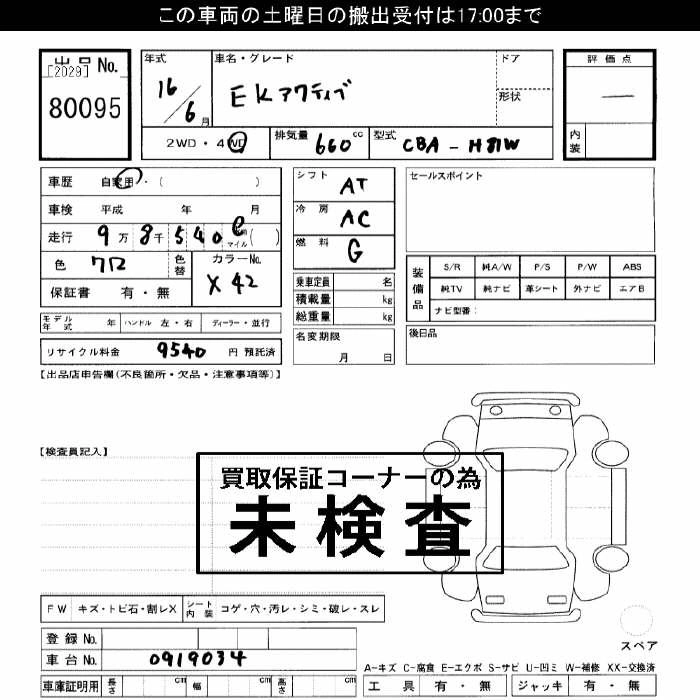 この車両の土曜日の搬出受付は17:00まで
出品 No.
[2029]
80095
年式
16/6月
車名・グレード
EKアクティブ
ドア
形状
評価点
—
内装
2WD・4WD
排気量 660 cc
型式 CBA - H81W
車歴 自家用・( )
車検 平成 年 月
走行 9万8千540 マイル( )
色 クロ
色替
カラーNo. X42
保証書 有・無
シフト AT
冷房 AC
燃料 G
乗車定員 名
積載量 kg
総重量 kg
セールスポイント
装備品
S/R 純A/W P/S P/W ABS
純TV 純ナビ 革シート 外ナビ エアB
ナビ型番:
モデル年式 年 ハンドル 左・右 ディーラー・並行
名変期限
月 日
後日品
リサイクル料金 9540 円 預託済
【出品店申告欄(不良箇所・欠品・注意事項等)】
【検査員記入】
買取保証コーナーの為
未検査
FW キズ・トビ石・割レX シート内装 コゲ・穴・汚レ・シミ・破レ・スレ
登録No.
車台No. 0919034
車庫証明用 長さ cm 幅 cm 高さ cm
スペア
A-キズ C-腐食 E-エクボ S-サビ U-凹ミ W-補修 XX-交換済
工具 有・無 ジャッキ 有・無